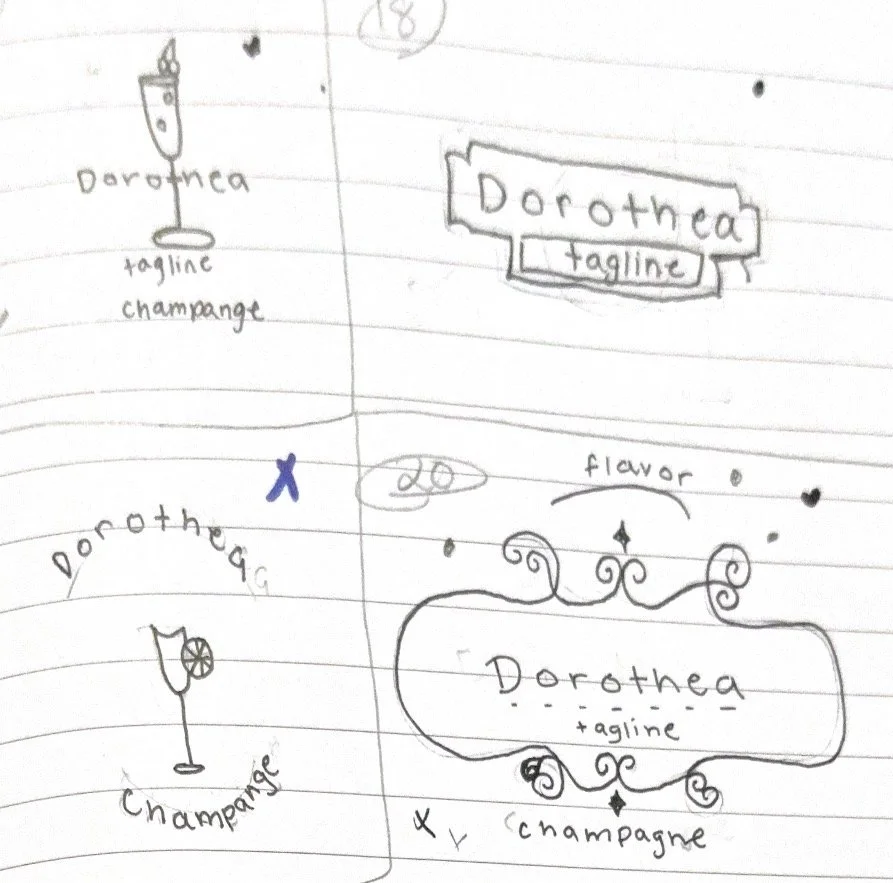 18
Dorothea
tagline
champange
Dorothea
tagline
Dorothea
Champange
20
flavor
Dorothea
tagline
champagne